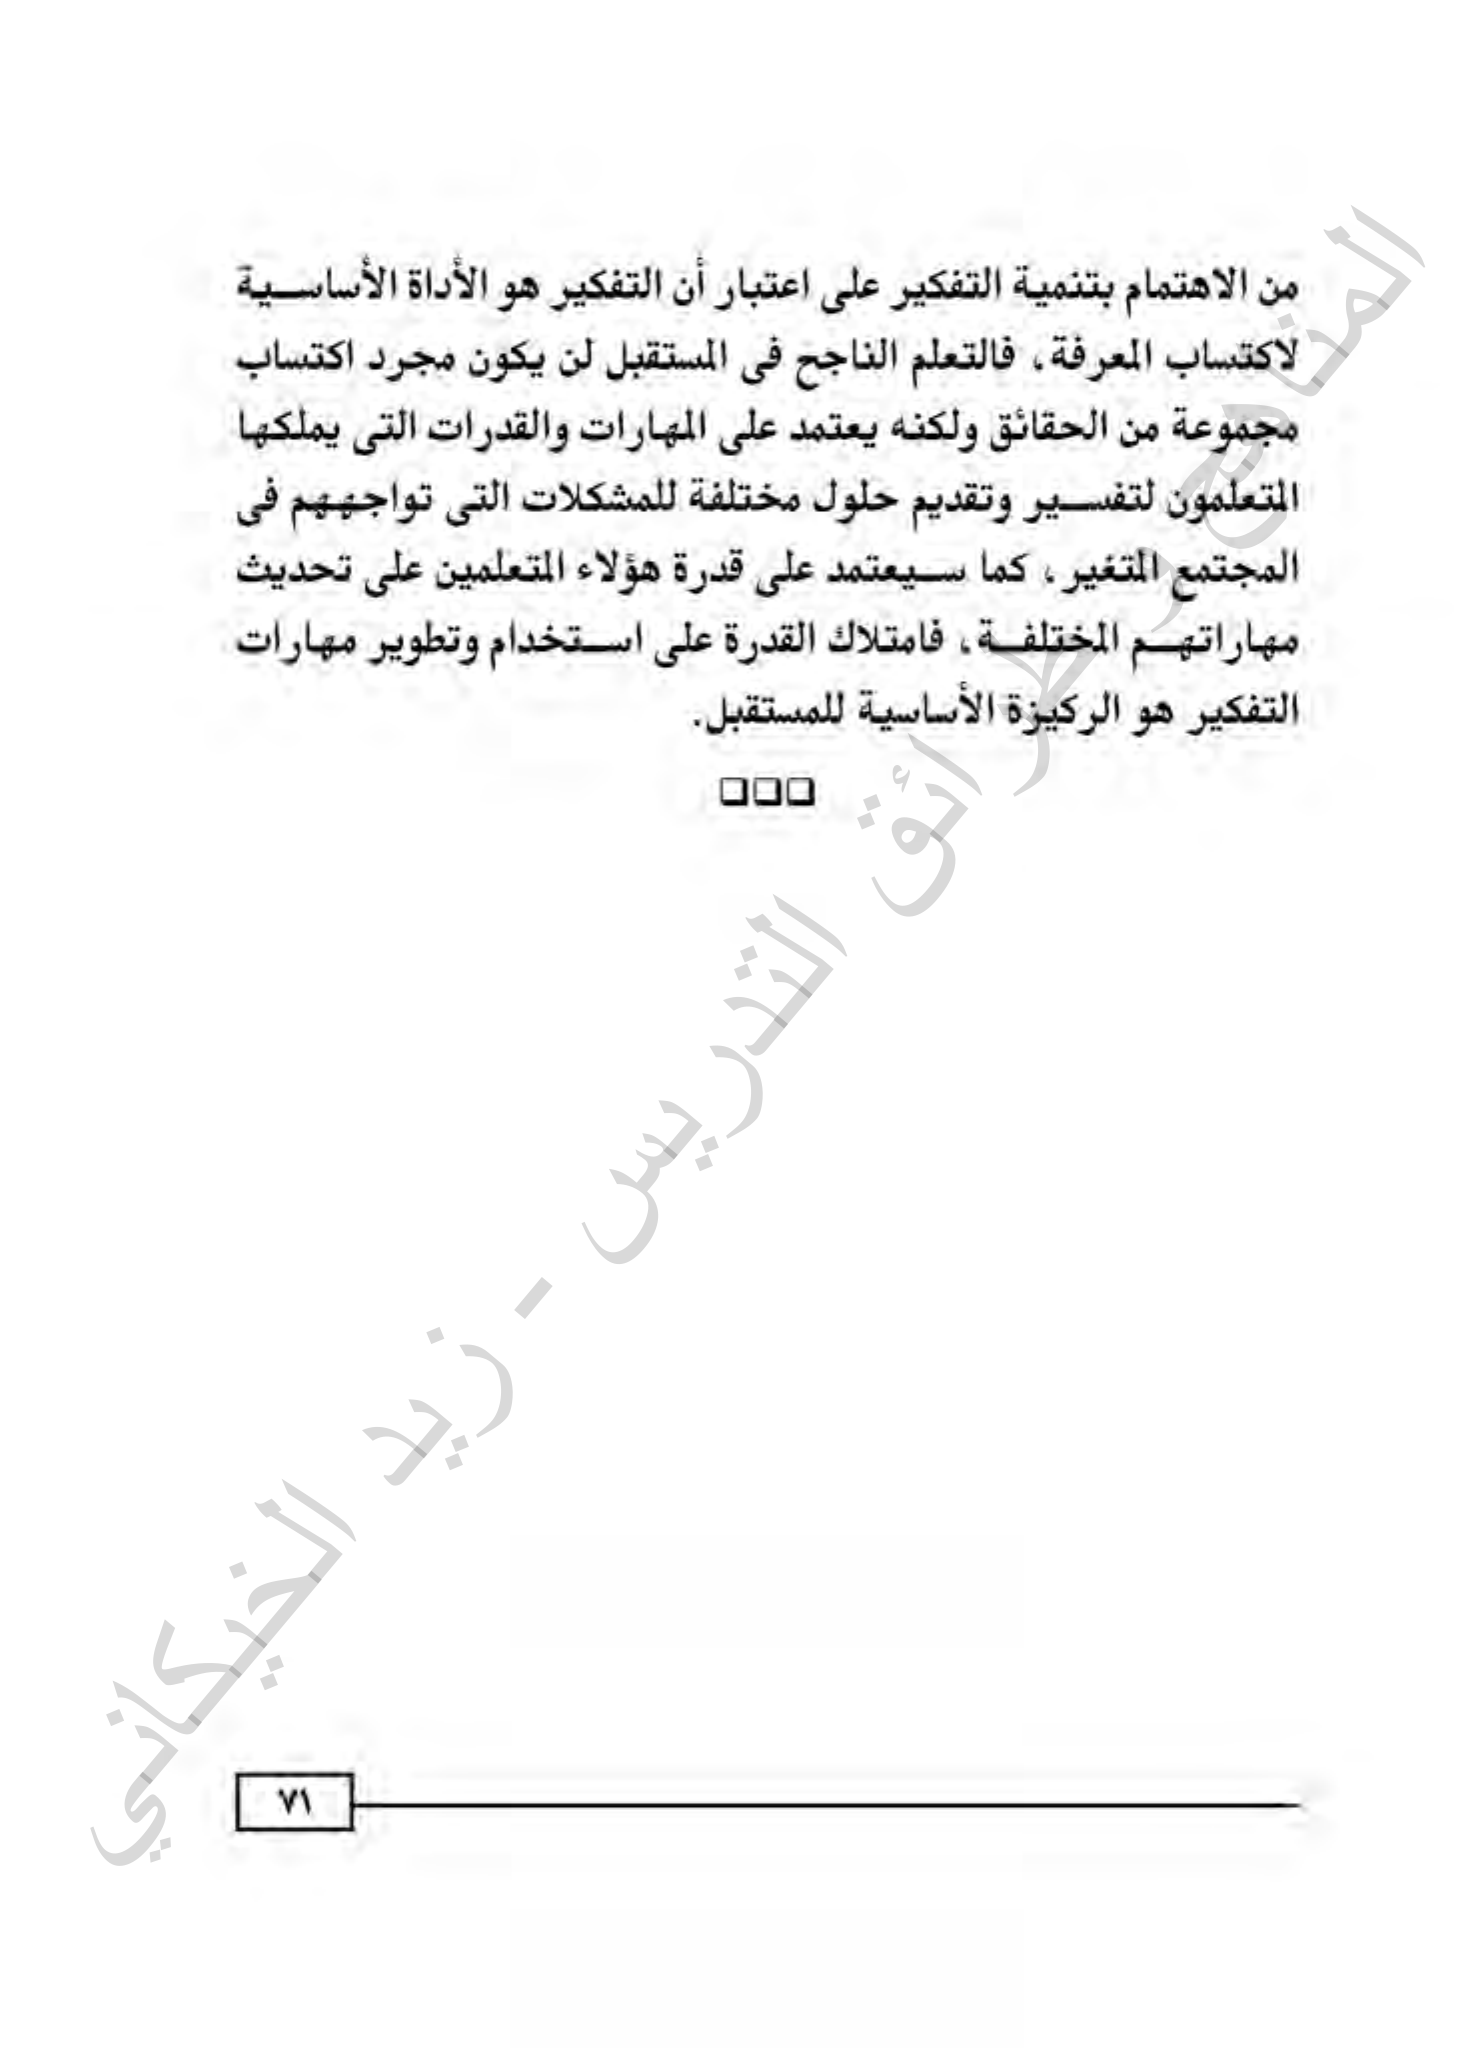 من الاهتمام بتنمية التفكير على اعتبار أن التفكير هو الأداة الأساسية
لاكتساب المعرفة، فالتعلم الناجح فى المستقبل لن يكون مجرد اكتساب
مجموعة من الحقائق ولكنه يعتمد على المهارات والقدرات التى يملكها
المتعلمون لتفسير وتقديم حلول مختلفة للمشكلات التى تواجههم فى
المجتمع المتغير، كما سيعتمد على قدرة هؤلاء المتعلمين على تحديث
مهاراتهم المختلفة، فامتلاك القدرة على استخدام وتطوير مهارات
التفكير هو الركيزة الأساسية للمستقبل.
المناهج وطرائق التدريس - زيد الخيكاني
٧١